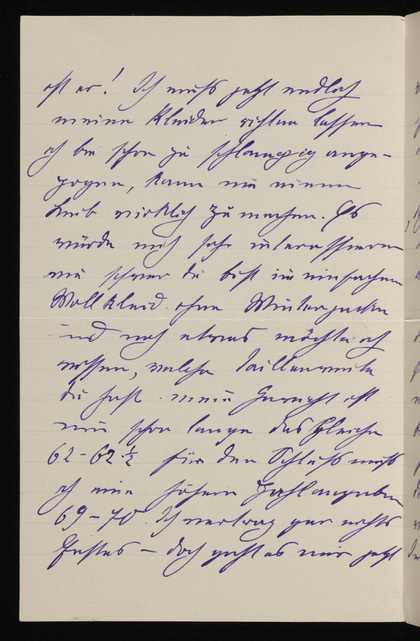 ist er! Ich muß jetzt endlich
meine Kleider richten lassen
ich bin schon zu schlampig ange-
zogen, kann nie einen
Leib wirklich zu machen. Es
würde mich sehr interessieren
wie schwer du bist im einfachen
Wollkleid ohne Winterjacke
und noch etwas möchte ich
wissen, welche Taillenweite
du hast. mein Gewicht ist
nun schon lange das Gleiche
62-62 ½ für den Schluß muß
ich eine höhere Zahl angeben
69-70. Ich vertrag gar nichts
Festes – doch geht es mir jetzt